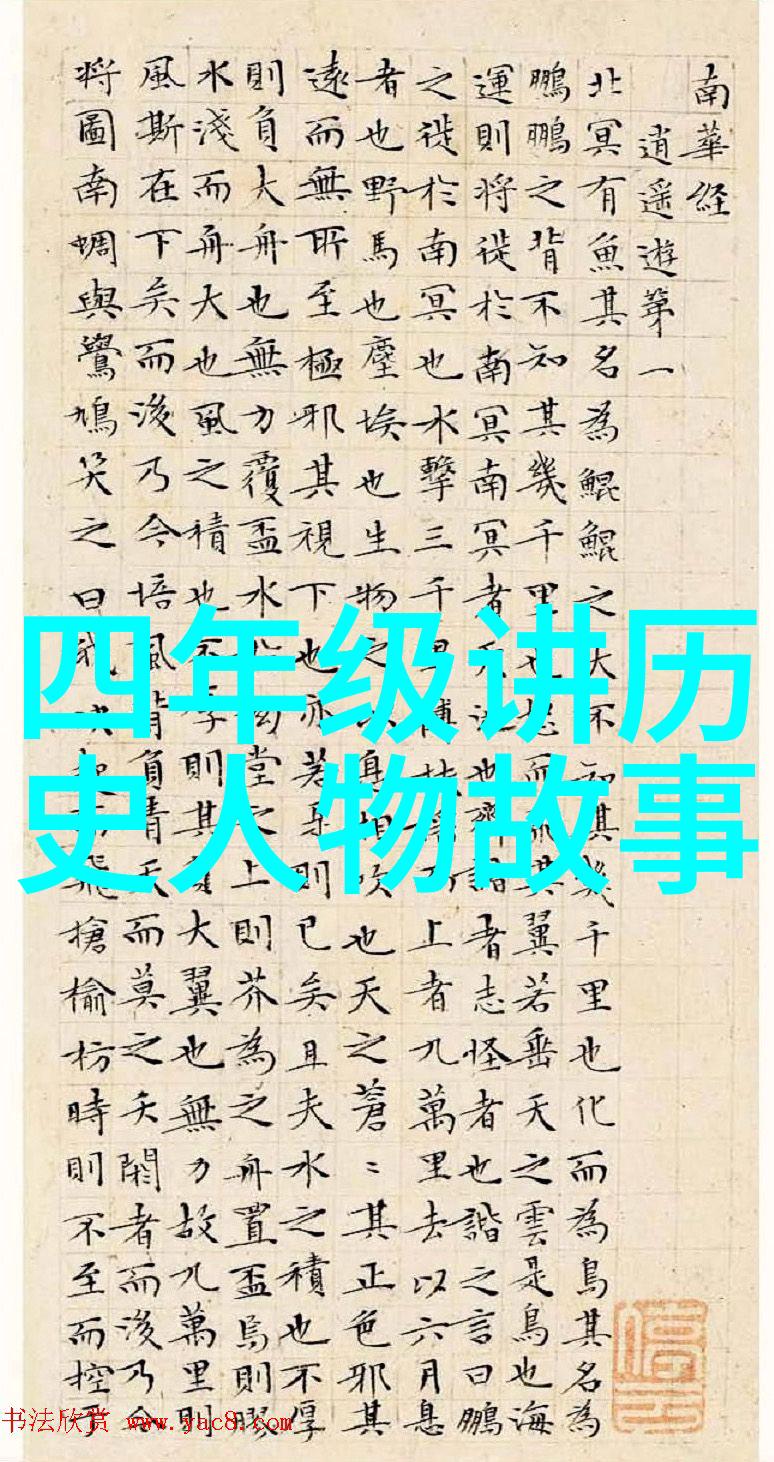 南華経
逍遥遊第一
北冥有魚其名為鯤鯤之大不知其幾千里也化而為鳥其名為
鵬鵬之背不知其幾千里也怒而飛其翼若垂天之雲是鳥也海
運則将徙於南冥南冥者天池也齊諧者志怪者也諧之言曰鵬
之徙於南冥也水擊三千里摶扶上者九萬里去以六月息
者也野馬也塵埃也生物之以息相吹也天之蒼〻其正色邪其
遠而無所至極邪其視下也亦若是則已矣且夫水之積也不厚
則負大舟也無力覆盃水堂之上則芥為之舟置盃焉則膠
水淺而舟大也風之積也不厚則其負大翼也無力故九萬里則
風斯在下矣而後乃今培風背負青天而莫之夭閼者而後乃今
将圖南蜩與鷽鳩笑之曰我飛搶榆枋時則不至而控
四年级讲历
史人物故事
书法欣赏 www.yac8.com